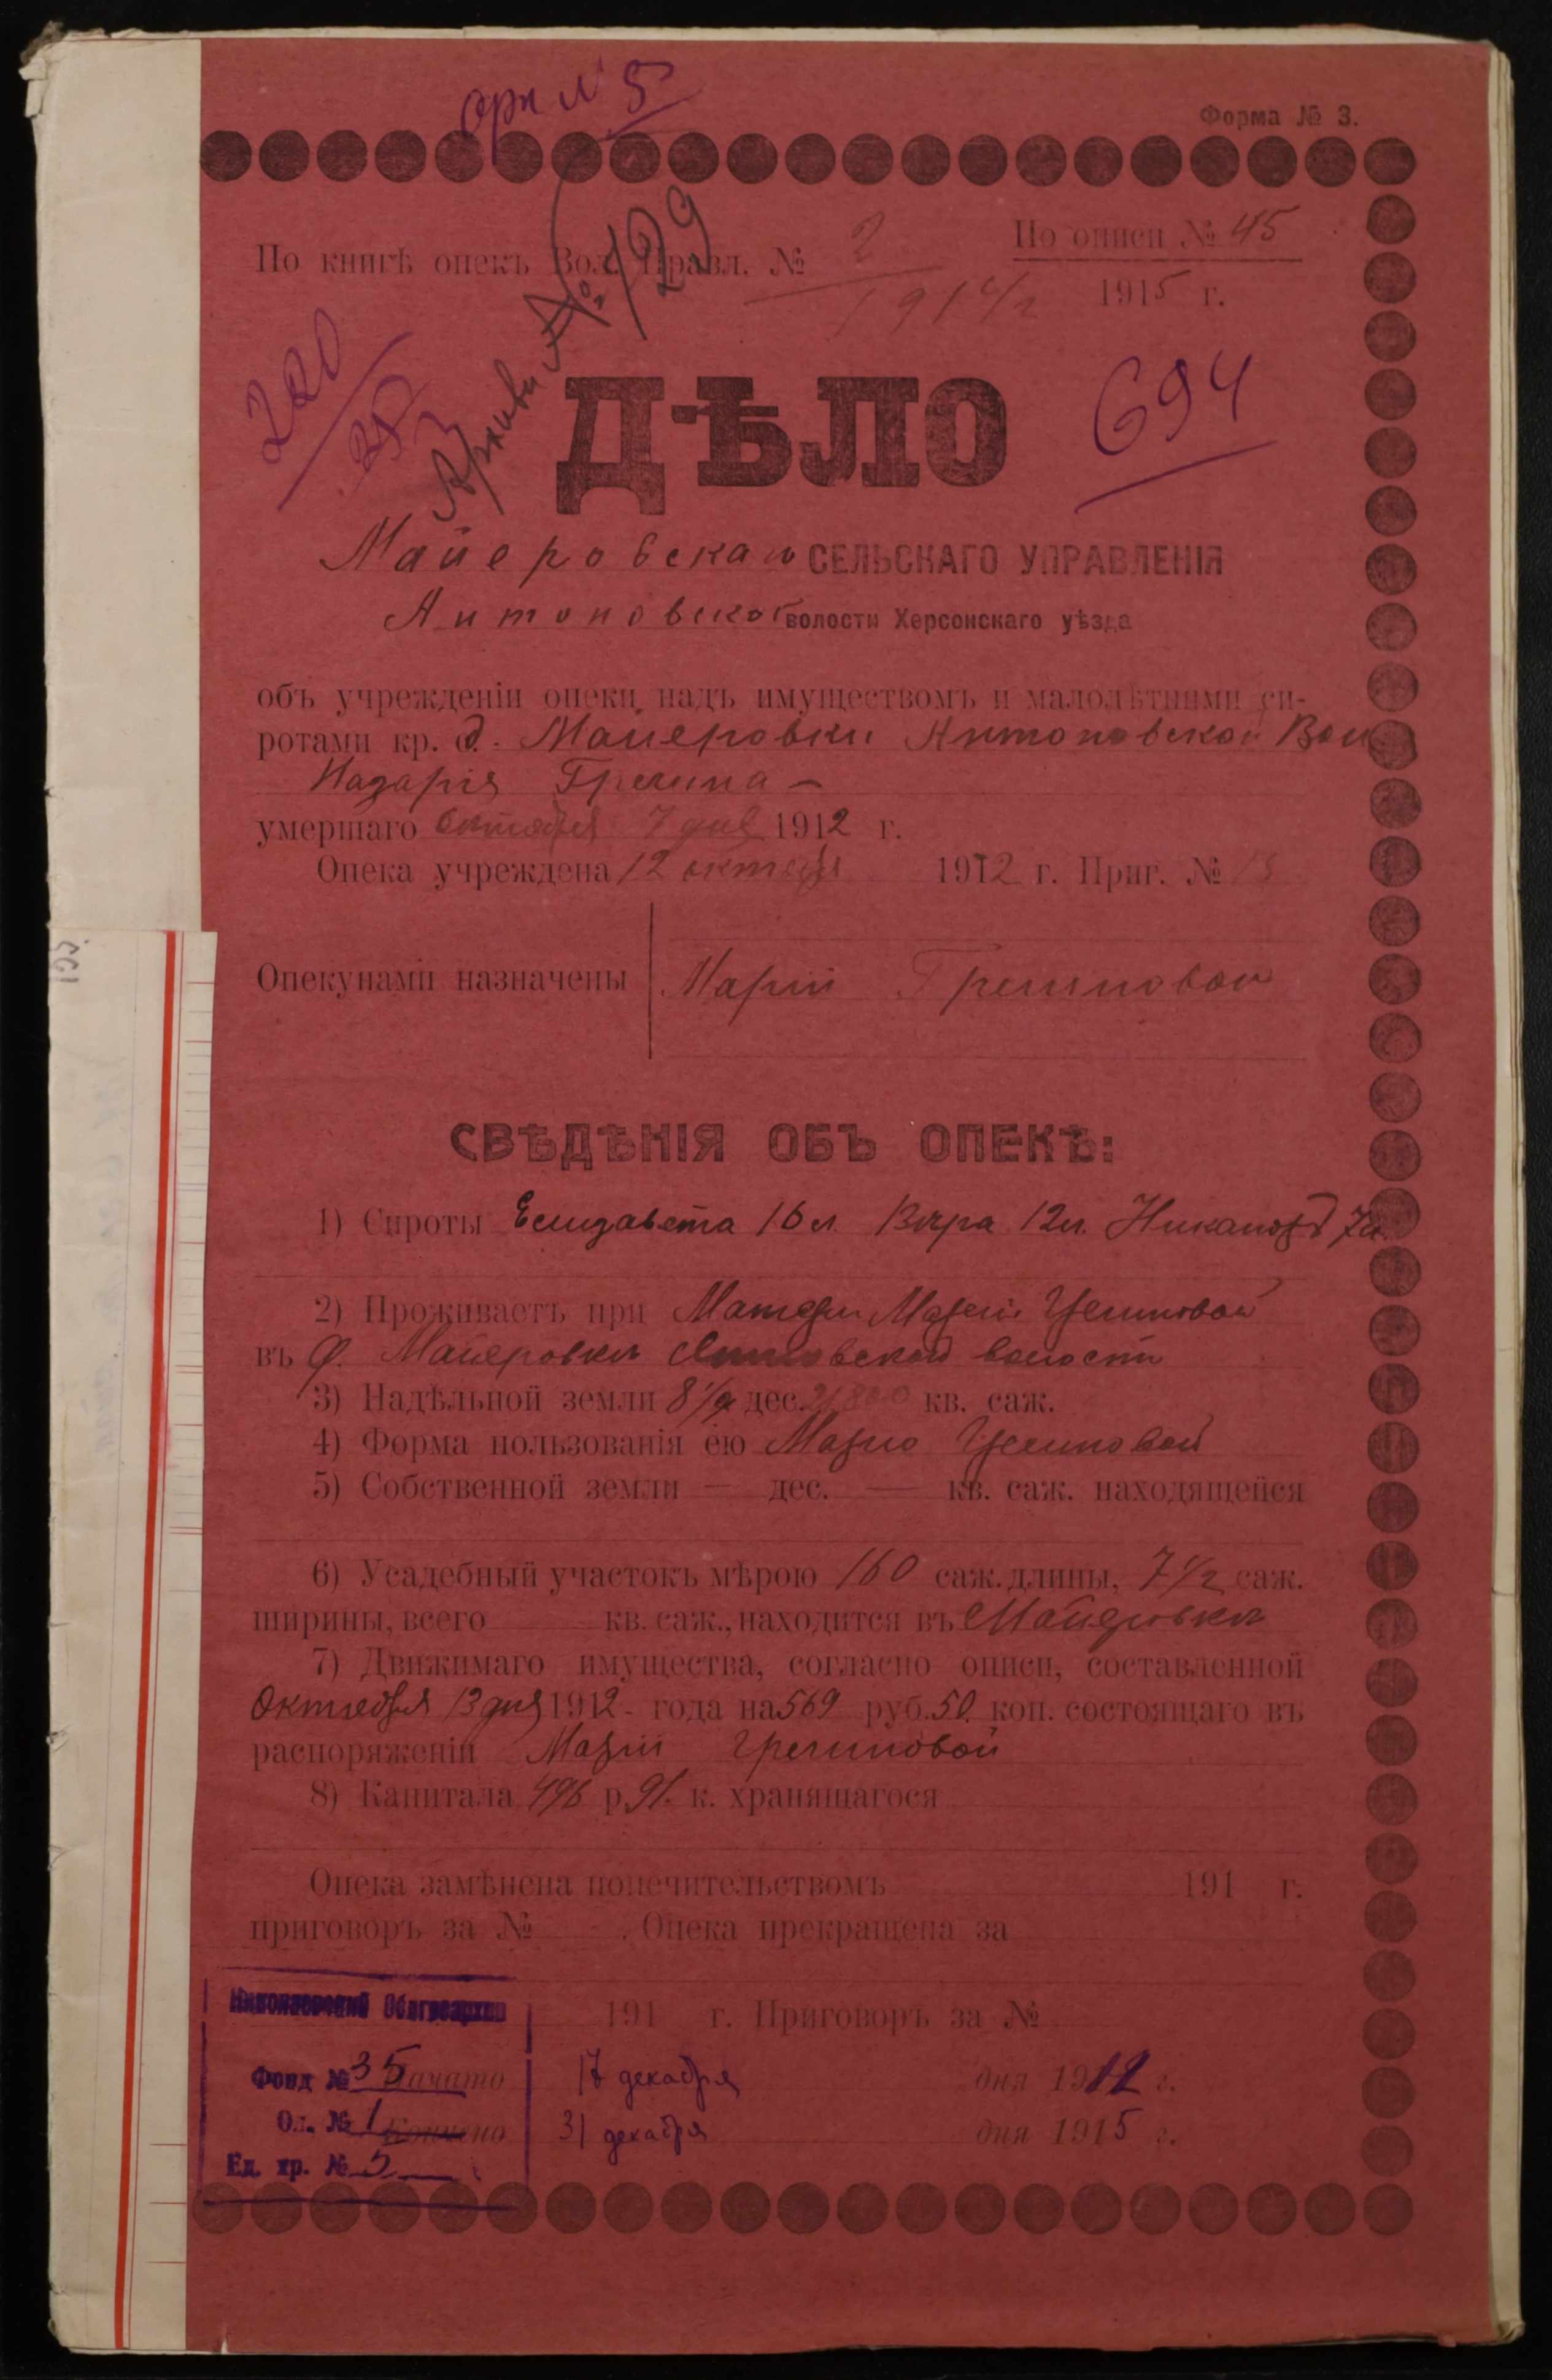 Форма № 3.
По описи № 45
По книгѣ опекъ Вол. Правл. № 2
1914 г. 1915 г.
Архивн № 129
220
694
ДѢЛО
Майеровскаго СЕЛЬСКАГО УПРАВЛЕНІЯ
Антоновской волости Херсонскаго уѣзда
объ учрежденіи опеки надъ имуществомъ и малолѣтними си-
ротами кр. д. Майеровки Антоновской Вол
Назарія Гречина
умершаго Октября 7 дня 1912 г.
Опека учреждена 12 октября 1912 г. Приг. №
Опекунами назначены Марія Гречиновой
СВѢДѢНІЯ ОБЪ ОПЕКѢ:
1) Сироты Елизавета 16 л. Вѣра 12 л. Никаноръ 7 л.
2) Проживаетъ при Матери Маріи Гречиновой
въ д. Майеровки Антоновской волости
3) Надѣльной земли 8 1/2 дес. кв. саж.
4) Форма пользованія ею Марію Гречиновой
5) Собственной земли — дес. — кв. саж. находящейся
6) Усадебный участокъ мѣрою 160 саж. длины, 7 1/2 саж.
ширины, всего кв. саж., находится въ Майеровки
7) Движимаго имущества, согласно описи, составленной
Октября 13 дня 1912 года на 569 руб. 50 коп. состоящаго въ
распоряженіи Маріи Гречиновой
8) Капитала 496 р. 91 к. хранящагося
Опека замѣнена попечительствомъ 191 г.
приговоръ за № . Опека прекращена за
191 г. Приговоръ за №
Николаевский Облгосархив
Фонд № 35
Начато 17 декабря дня 1912 г.
Оп. № 1
Кончено 31 декабря дня 1915 г.
Ед. хр. № 5